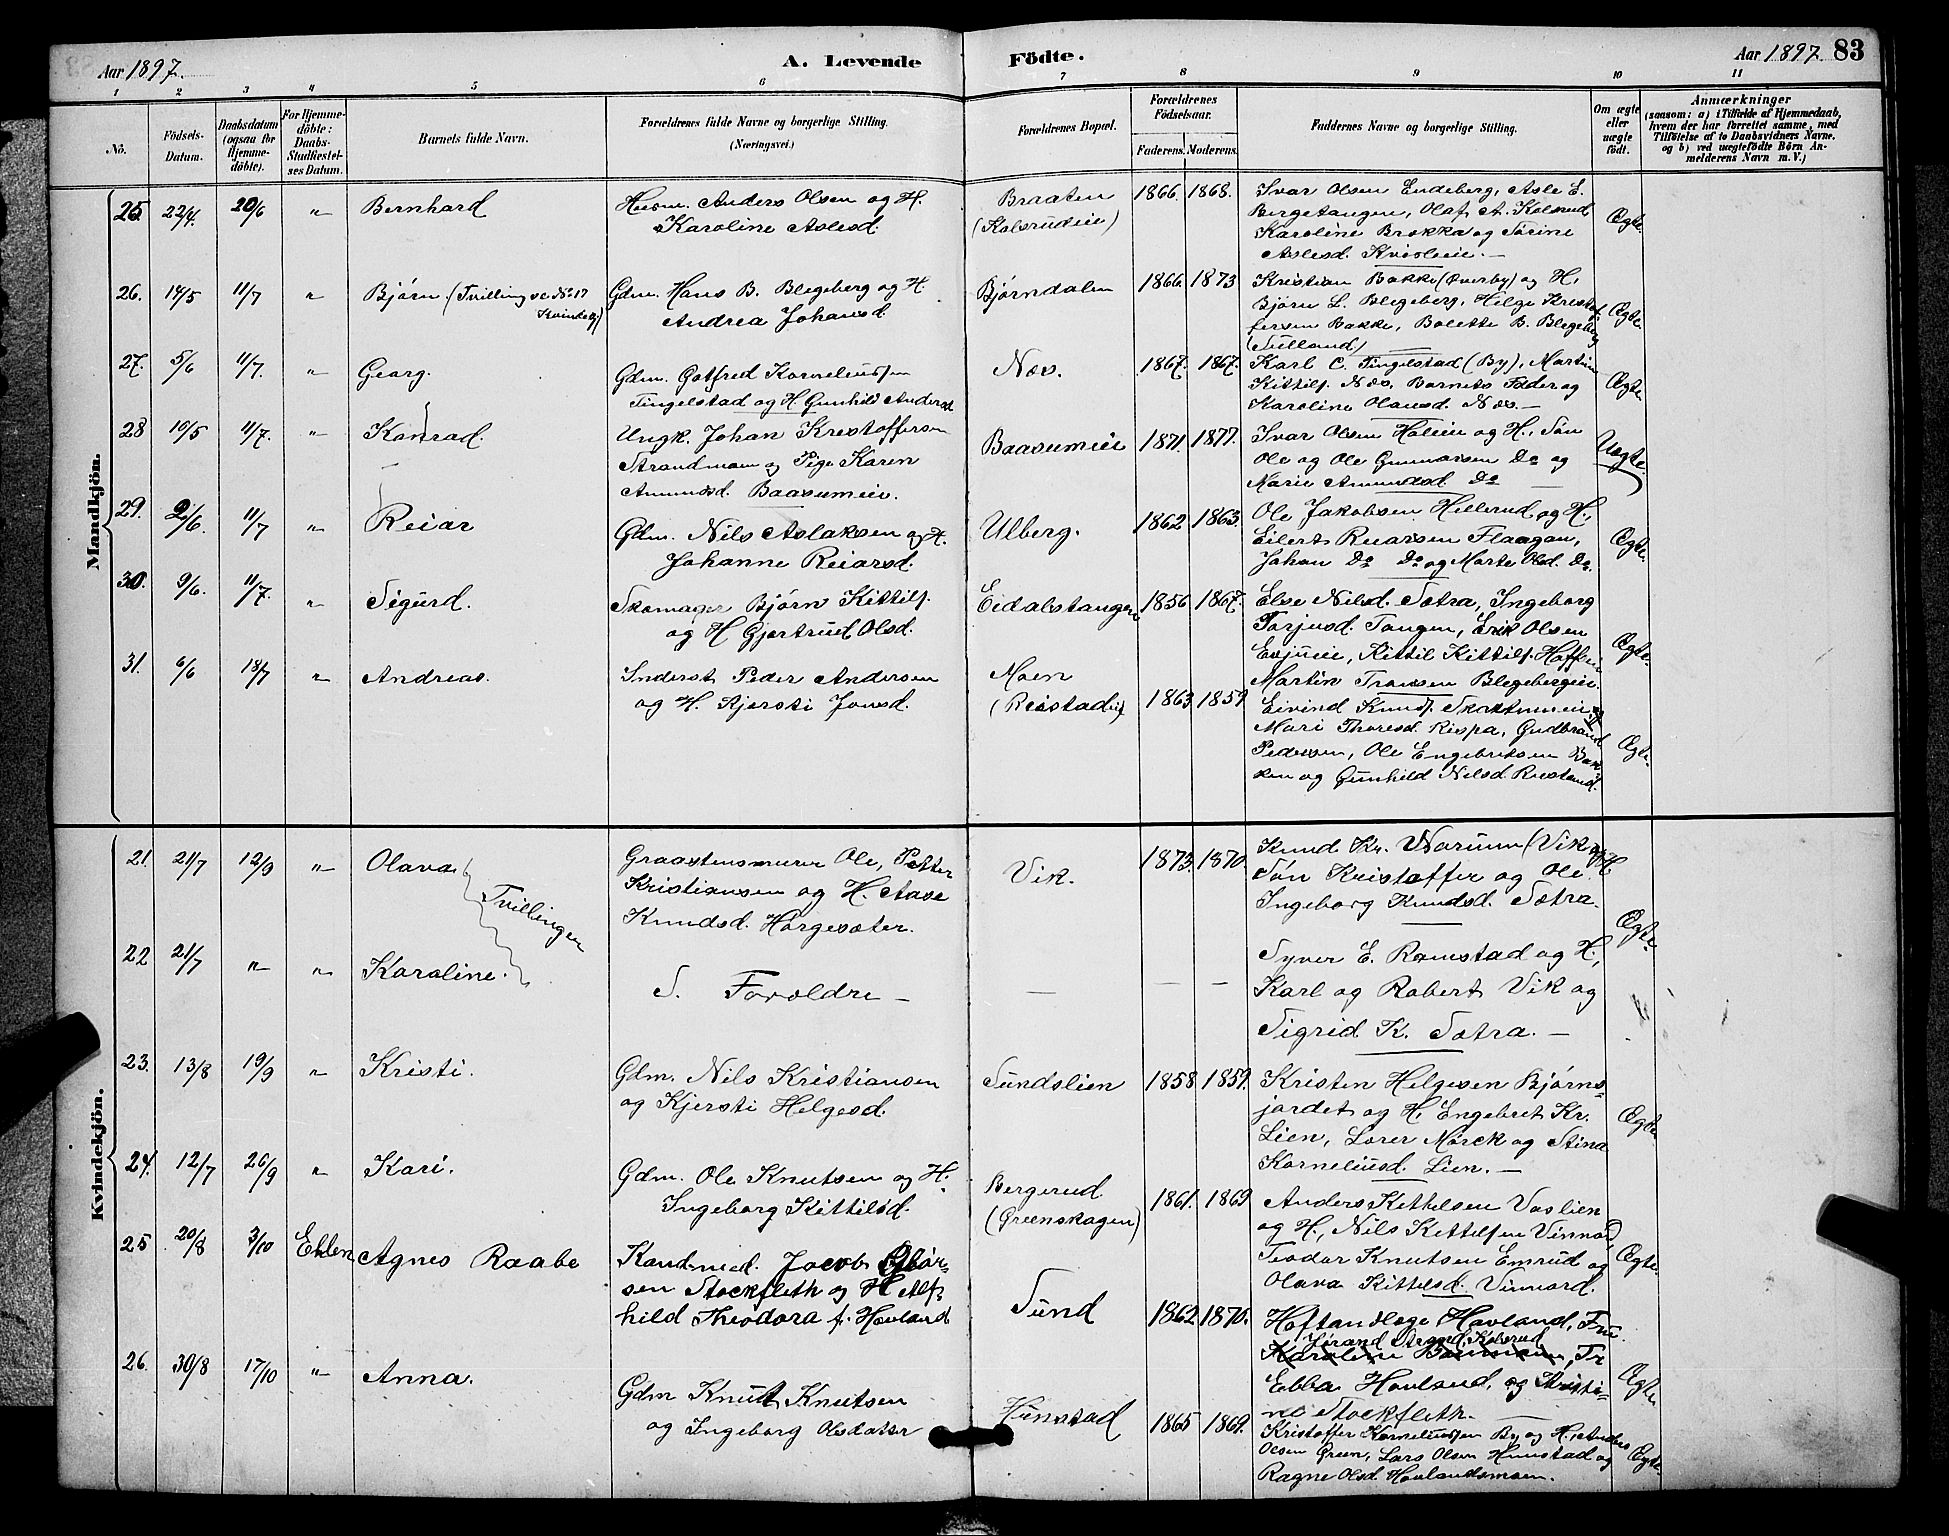 Aar 1897.
A. Levende
Födte.
Aar 1897. 83
1 2 3 4 5 6 7 8 9 10 11
No.
Födsels-
Datum.
Daabsdatum
(ogsaa for
Hjemme-
döbte).
For Hjemme-
döbte:
Daabs-
Stadfæstel-
ses Datum.
Barnets fulde Navn.
Forældrenes fulde Navne og borgerlige Stilling.
(Næringsvei.)
Forældrenes Bopæl.
Forældrenes
Födselsaar.
Faderens. Moderens.
Faddernes Navne og borgerlige Stilling.
Om ægte
eller
uægte
födt.
Anmærkninger
(saasom: a) i Tilfælde af Hjemmedaab,
hvem der har forrettet samme, med
Tilföielse af to Daabsvidners Navne.
og b) ved uægtefödte Börn An-
melderens Navn m. V.)
Mandkjön.
25 22/4. 20/6 " Bernhard
Husm. Anders Olsen og H.
Karoline Aslesd.
Braaten
(Kolsrudeie)
1866. 1868.
Ivar Olsen Endeberg, Asle E.
Bergetangen, Olaf A. Kolsrud
Karoline Brokka og Sørine
Aslesd. Kvisleie. —
Ægte.
26. 14/5 11/7 " Bjørn. (Tvilling se No 17
Kvindekj)
Gdm. Hans B. Blegeberg og H
Andrea Johansd.
Bjørndalen
1866. 1873
Kristian Bakke (Øverby) og H.
Bjørn L. Blegeberg, Helge Kristof
fersen Bakke, Bolette B. Blegeberg
(Sulland)
Ægte.
27. 5/6 11/7. " Georg.
Gdm. Gotfred Korneliussen
Tingelstad og H. Gunhild Andersd
Næs.
1867. 1867.
Karl C. Tingelstad (By), Martin
Kittilf. Næs, Barnets Fader og
Karoline Olausd. Næs. —
Ægte.
28 10/5 11/7. " Konrad.
Ungk. Johan Kristoffersen
Strandmoen og Pige Karen
Amundsd. Baasumeie.
Baasumeie
1871. 1877.
Ivar Olsen Høieie og H., Søn
Ole og Ole Gunnarsen Do og
Marie Amundsd. Do —
Uægte.
29. 2/6. 11/7 " Reiar
Gdm. Nils Aslaksen og H.
Johanne Reiarsd.
Ulberg.
1862 1863.
Ole Jakobsen Hellerud og H.,
Eilert Reiarsen Flaagan,
Johan Do Do og Marte Olsd. Do.
Ægte.
30. 9/6. 11/7. " Sigurd.
Skomager Bjørn Kittilf.
og H Gjertrud Olsd.
Eidalstangen
1856 1867.
Else Nilsd. Sætra, Ingeborg
Torjusd. Tangen, Erik Olsen
Evjueie, Kittil Kittilf. Haffn
Martin Transen Blegebergeie.
Ægte.
31. 6/6 18/7 " Andreas.
Inderst Peder Andersen
og H. Kjersti Jonsd.
Moen
(Reistadei)
1863 1859
Eivind Knutf. Skartumeie og H
Mari Thoresd. Rispa, Gudbrand
Pedersen, Ole Engebriksen Bak-
ken og Gunhild Nilsd. Rustand.
Ægte.
Kvindekjön.
21. 21/7 12/9 " Olava.
Tvillinger
Graastensmurer Ole, Petter
Kristiansen og H. Aase
Knudsd. Horgesæter.
Vik.
1873. 1870.
Knud Kr. Warum (Vik og H
Søn Kristoffer og Ole.
Ingeborg Knudsd. Sætra.
Ægte.
22 21/7 " " Karoline.
S. Forældre —
— — —
Syver E. Ramstad og H.,
Karl og Robert Vik og
Sigrid K. Sætra. —
23. 13/8 19/9 " Kristi.
Gdm. Nils Kristiansen
og Kjersti Helgesd.
Sundslien
1858 1859.
Kristen Helgesen Bjørns-
jordet og H. Engebret Kr.
Lien, Lorer Mørck og Stina
Korneliusd. Lien. —
Ægte
24. 12/7 26/9 " Kari.
Gdm. Ole Knutsen og H.
Ingeborg Kittilsd.
Bergerud
(Greenskogen)
1861. 1869
Anders Kethelsen Vaslien
og H., Nils Kettilsen Vinnord,
Teodor Knutsen Emrud og
Olava Kittilsd. Vinnord.
Ægte.
25 20/8 3/10 Agnes Raabe
Kand. med. Jacob Gbør-
sen Stockfleth og H Alf-
hild Theodora f. Hovland
Sund
1862 1870.
Hoftandlæge Hovland, Fru
Jørand Strand Kolsrud
Karoline, Fr
Ebba Hovland, og Kristi-
ne Stockfleth. —
Ægte
26. 30/8 17/10 " Anna.
Gdm Knut Knutsen
og Ingeborg Olsdatter
Hunstad
1865 1869.
Kristoffer Korneliussen By og H., Anders
Olsen Green, Lars Olsen Hunstad og
Ragne Olsd. Hovlandsmoen.
Ægte.